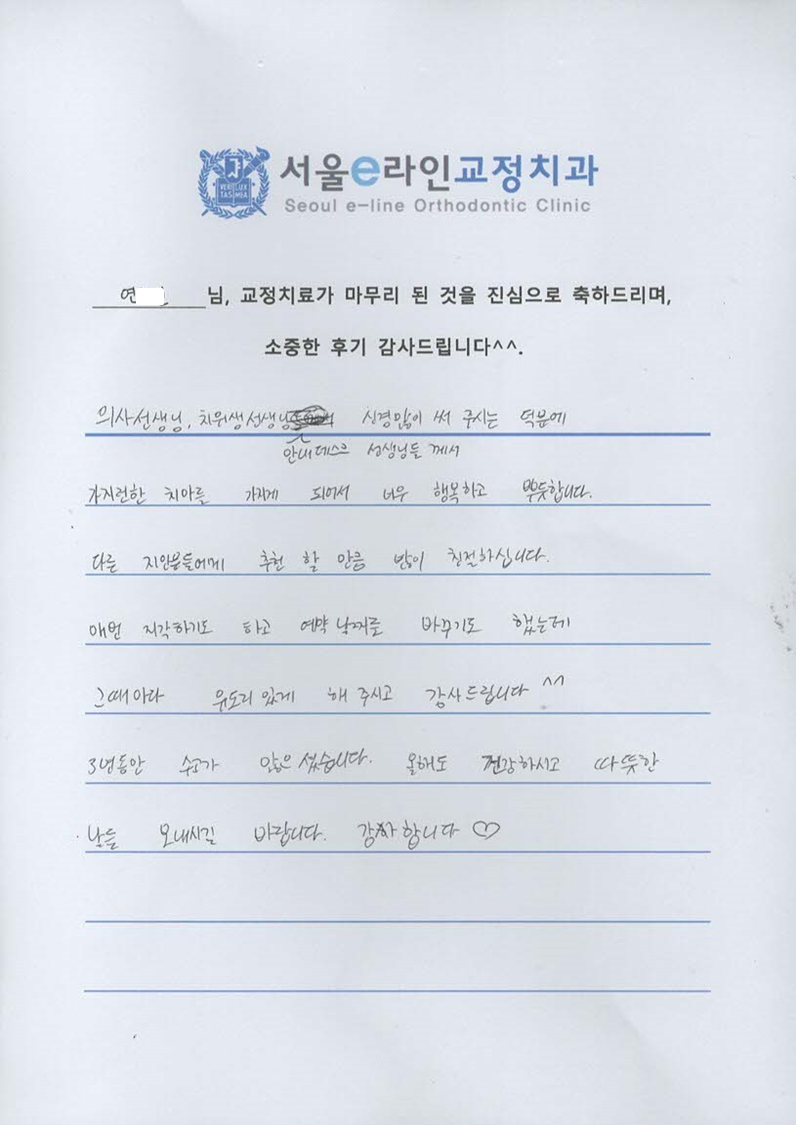 VERI LUX TAS MEA
서울e라인교정치과
Seoul e-line Orthodontic Clinic
연 님, 교정치료가 마무리 된 것을 진심으로 축하드리며,
소중한 후기 감사드립니다^^.
의사선생님, 치위생선생님 신경많이 써 주시는 덕분에
안내데스크 선생님들 께서
가지런한 치아를 가지게 되어서 너무 행복하고 뿌듯합니다.
다른 지인분들에게 추천 할 만큼 많이 친절하십니다.
매번 지각하기도 하고 예약 날짜를 바꾸기도 했는데
그때마다 유도리 있게 해 주시고 감사드립니다 ^^
3년동안 수고가 많으셨습니다. 올해도 건강하시고 따뜻한
날들 보내시길 바랍니다. 감사합니다 ♡